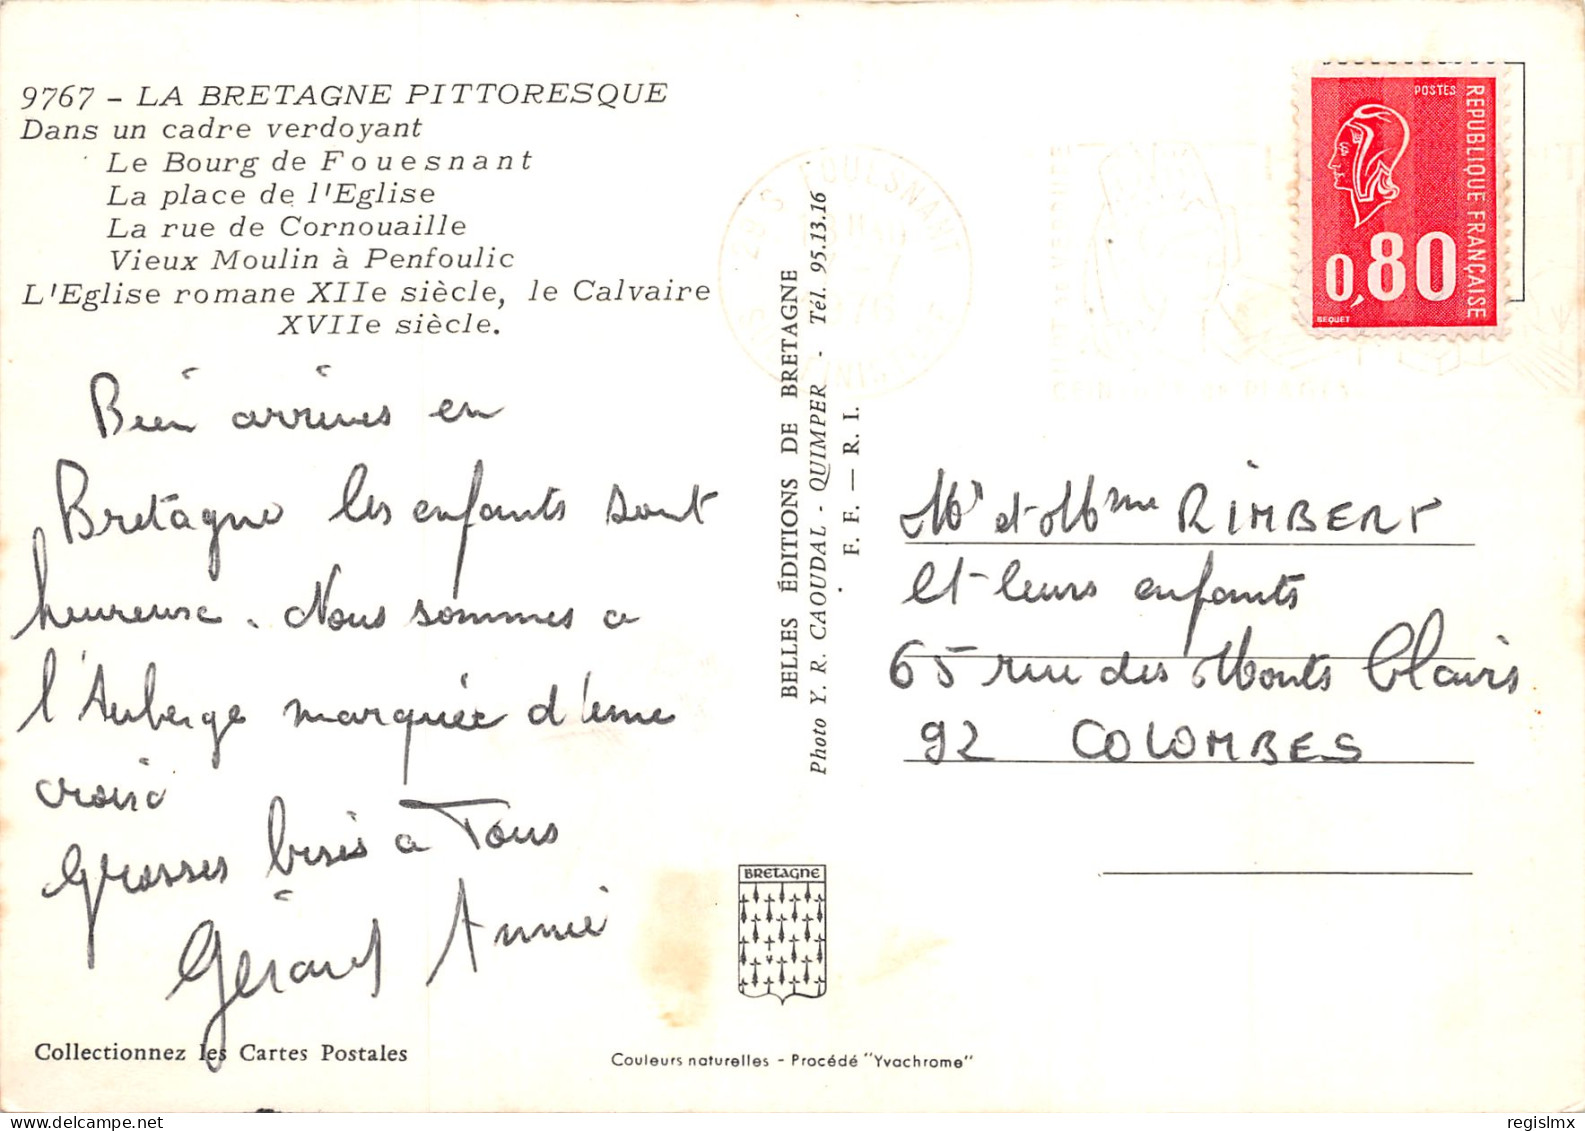 9767 - LA BRETAGNE PITTORESQUE
Dans un cadre verdoyant
Le Bourg de Fouesnant
La place de l'Eglise
La rue de Cornouaille
Vieux Moulin à Penfoulic
L'Eglise romane XIIe siècle, le Calvaire
XVIIe siècle.
Bien arrives en
Bretagne les enfants sont
heureux. Nous sommes a
l'Auberge marquée d'une
croix
Grosses bises a Tous
Gérard Annie
Collectionnez les Cartes Postales
BELLES ÉDITIONS DE BRETAGNE
Photo Y. R. CAOUDAL - QUIMPER - Tél. 95.13.16
F. F. — R. I.
BRETAGNE
Couleurs naturelles - Procédé "Yvachrome"
FOUESNANT
POSTES
REPUBLIQUE FRANÇAISE
0,80
BEQUET
Mr et Mme RIMBERT
et leurs enfants
65 rue des Monts Clairs
92 COLOMBES
regislmx